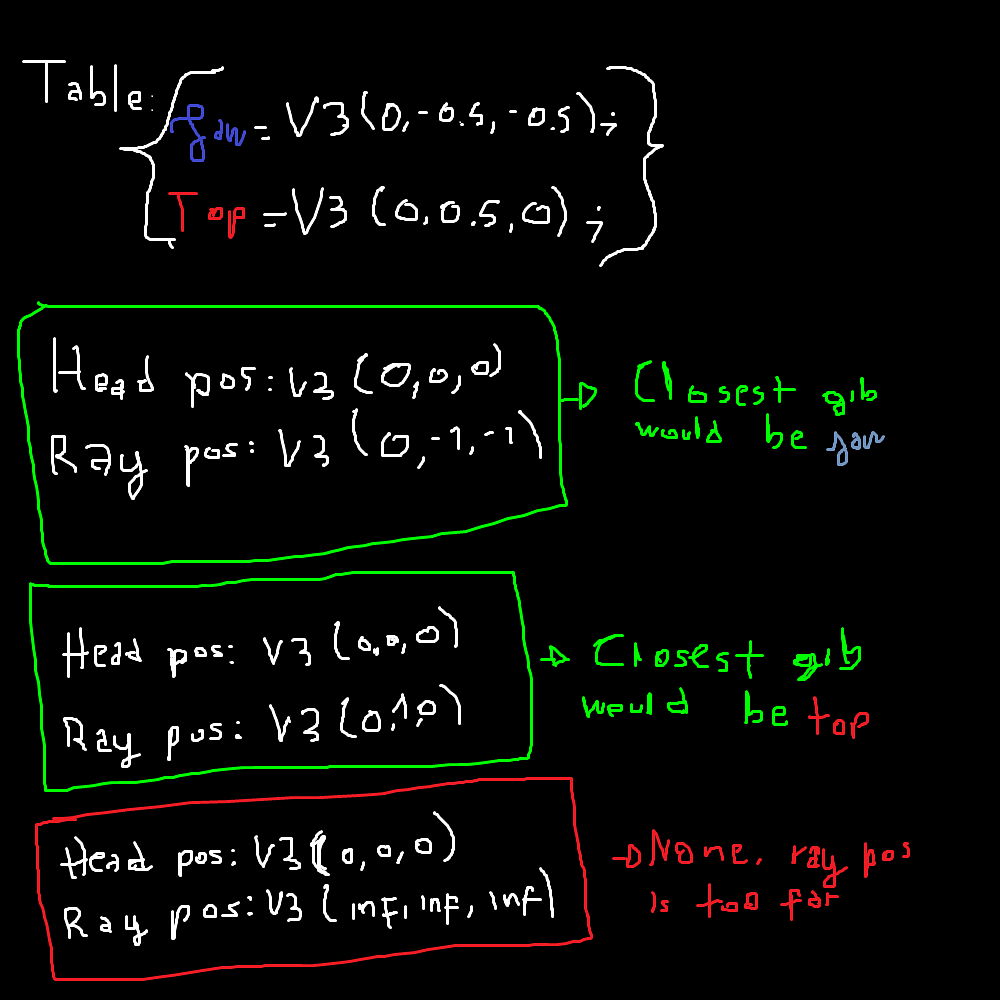 Table:
Jaw = V3(0,-0.5,-0.5);
Top = V3 (0,0.5,0);
Head pos: V3 (0,0,0)
Ray pos: V3 (0,-1,-1)
Closest gib
would be jaw
Head pos: V3 (0,0,0)
Ray pos: V3 (0,1,0)
Closest gib
would be top
Head pos: V3(0,0,0)
Ray pos: V3 (inf,inf,inf)
None, ray pos
is too far